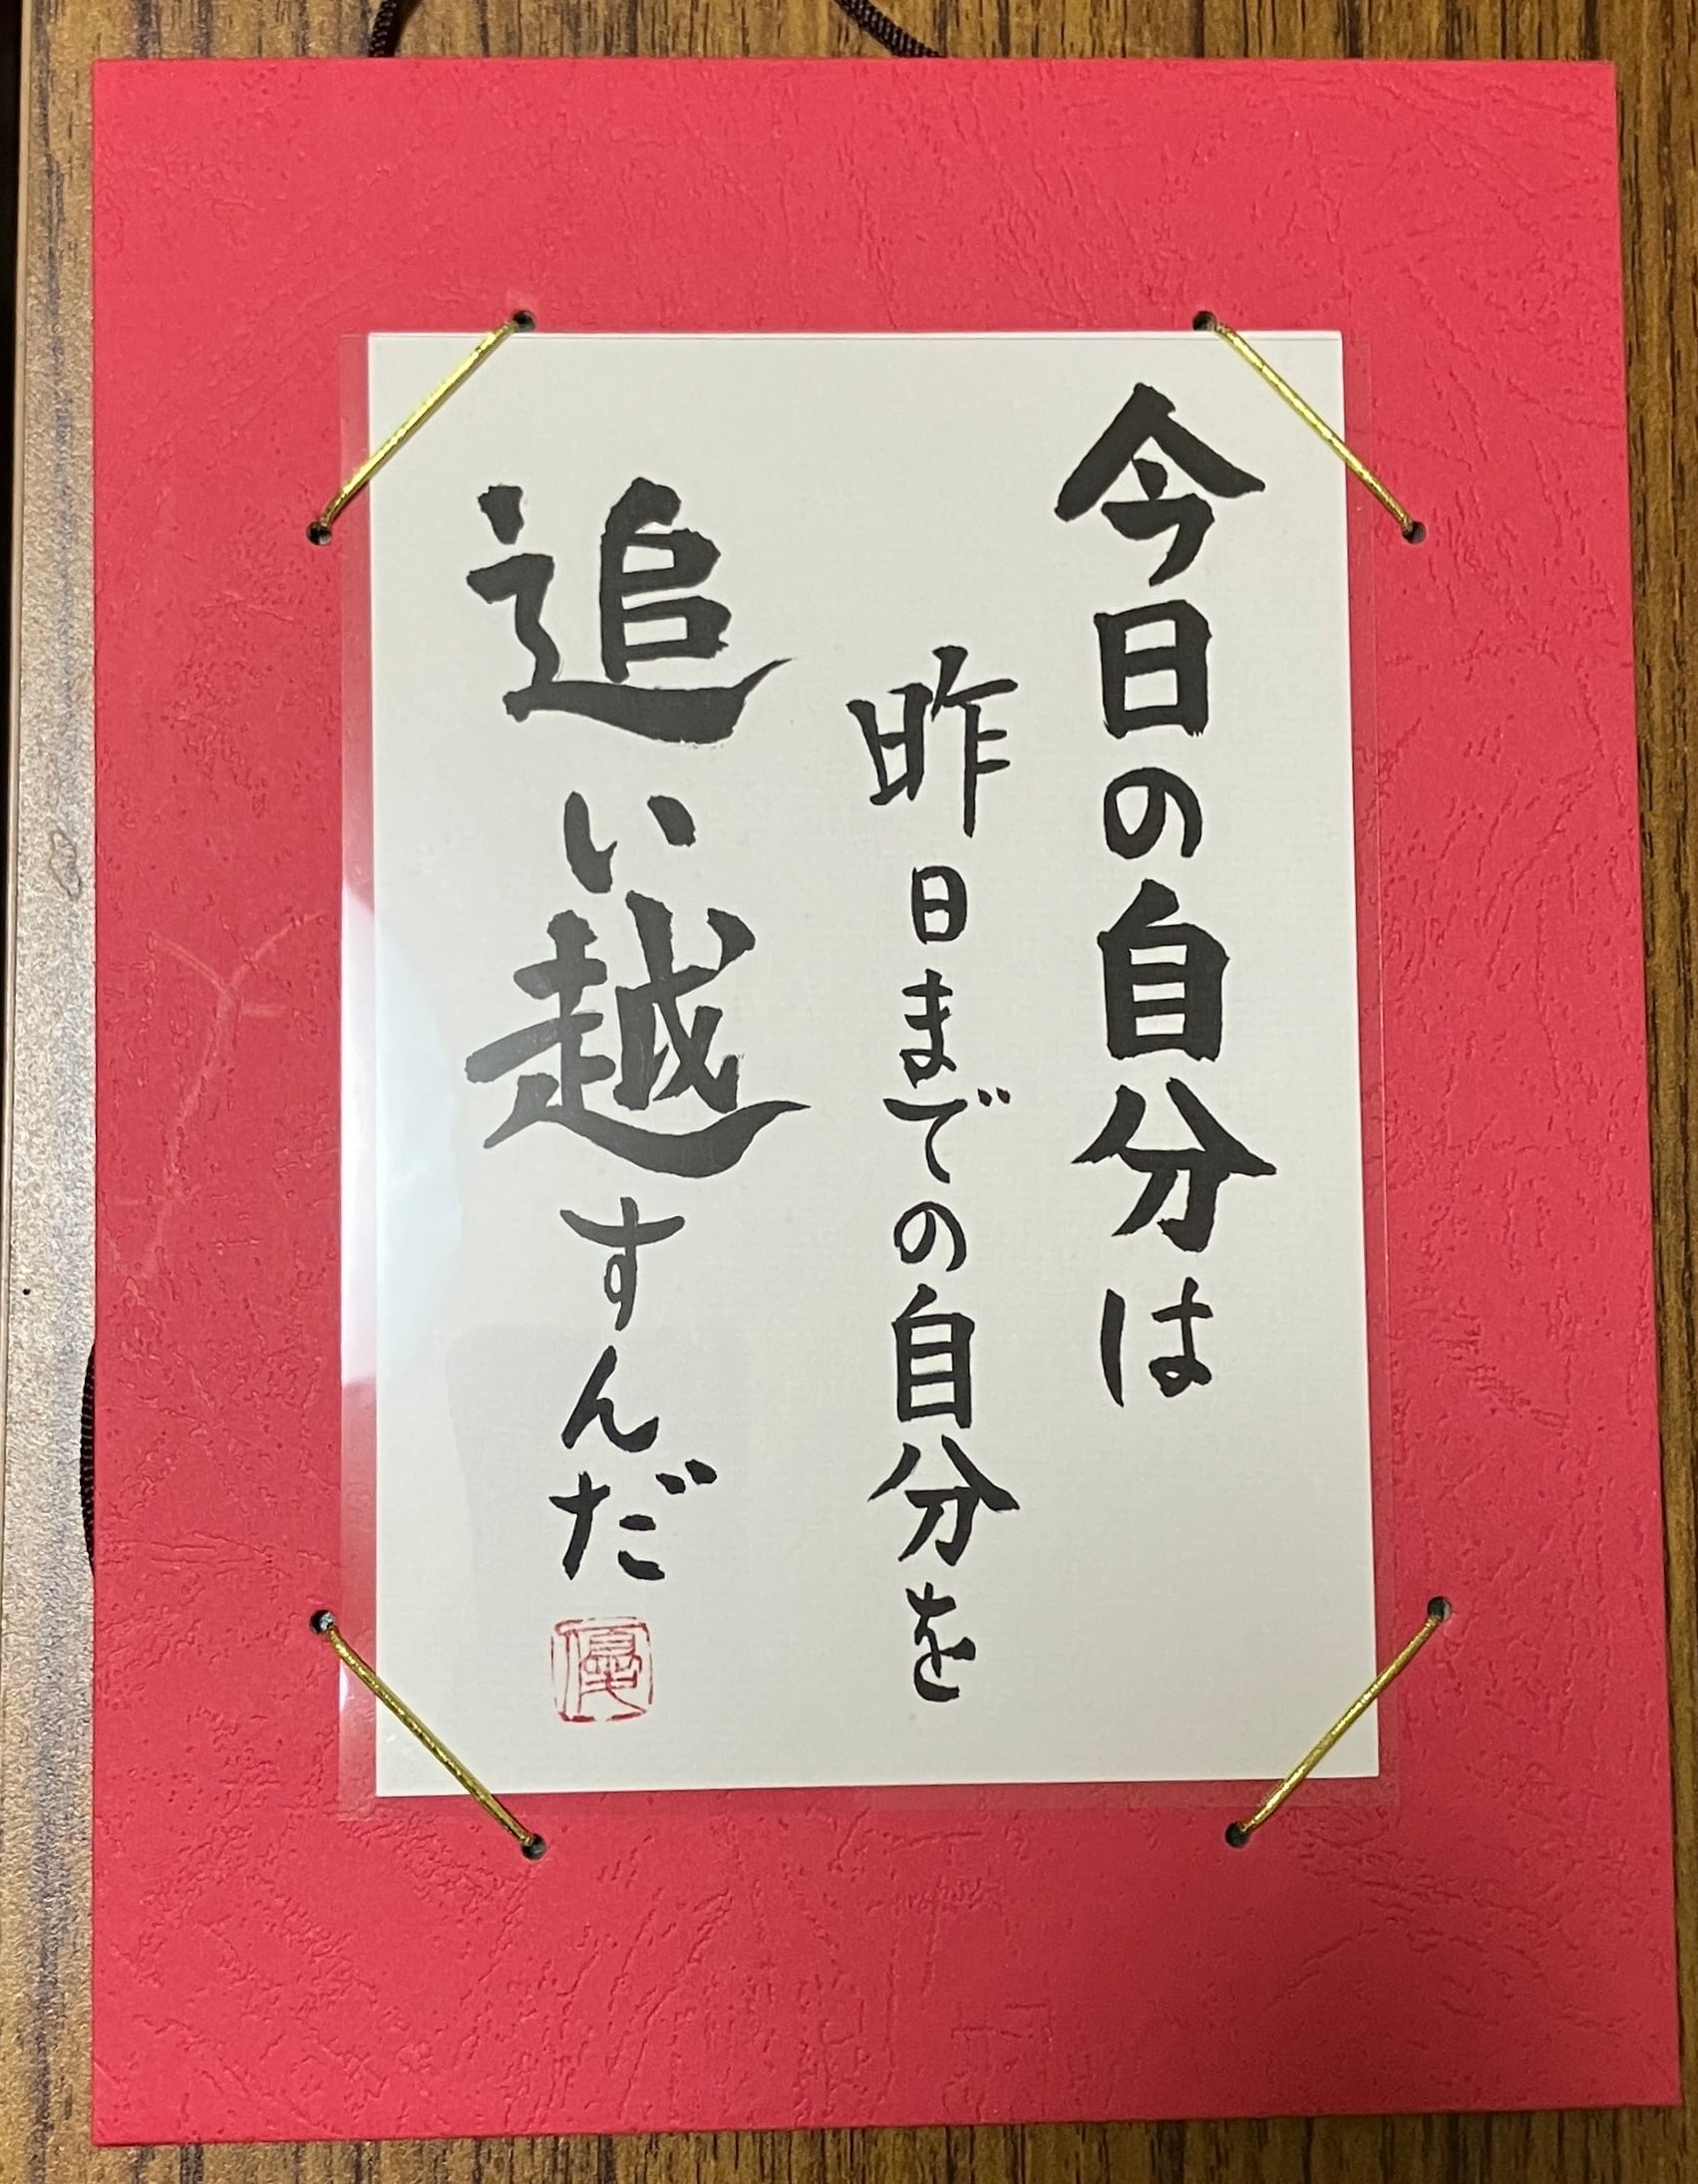 今日の自分は
昨日までの自分を
追い越すんだ
優